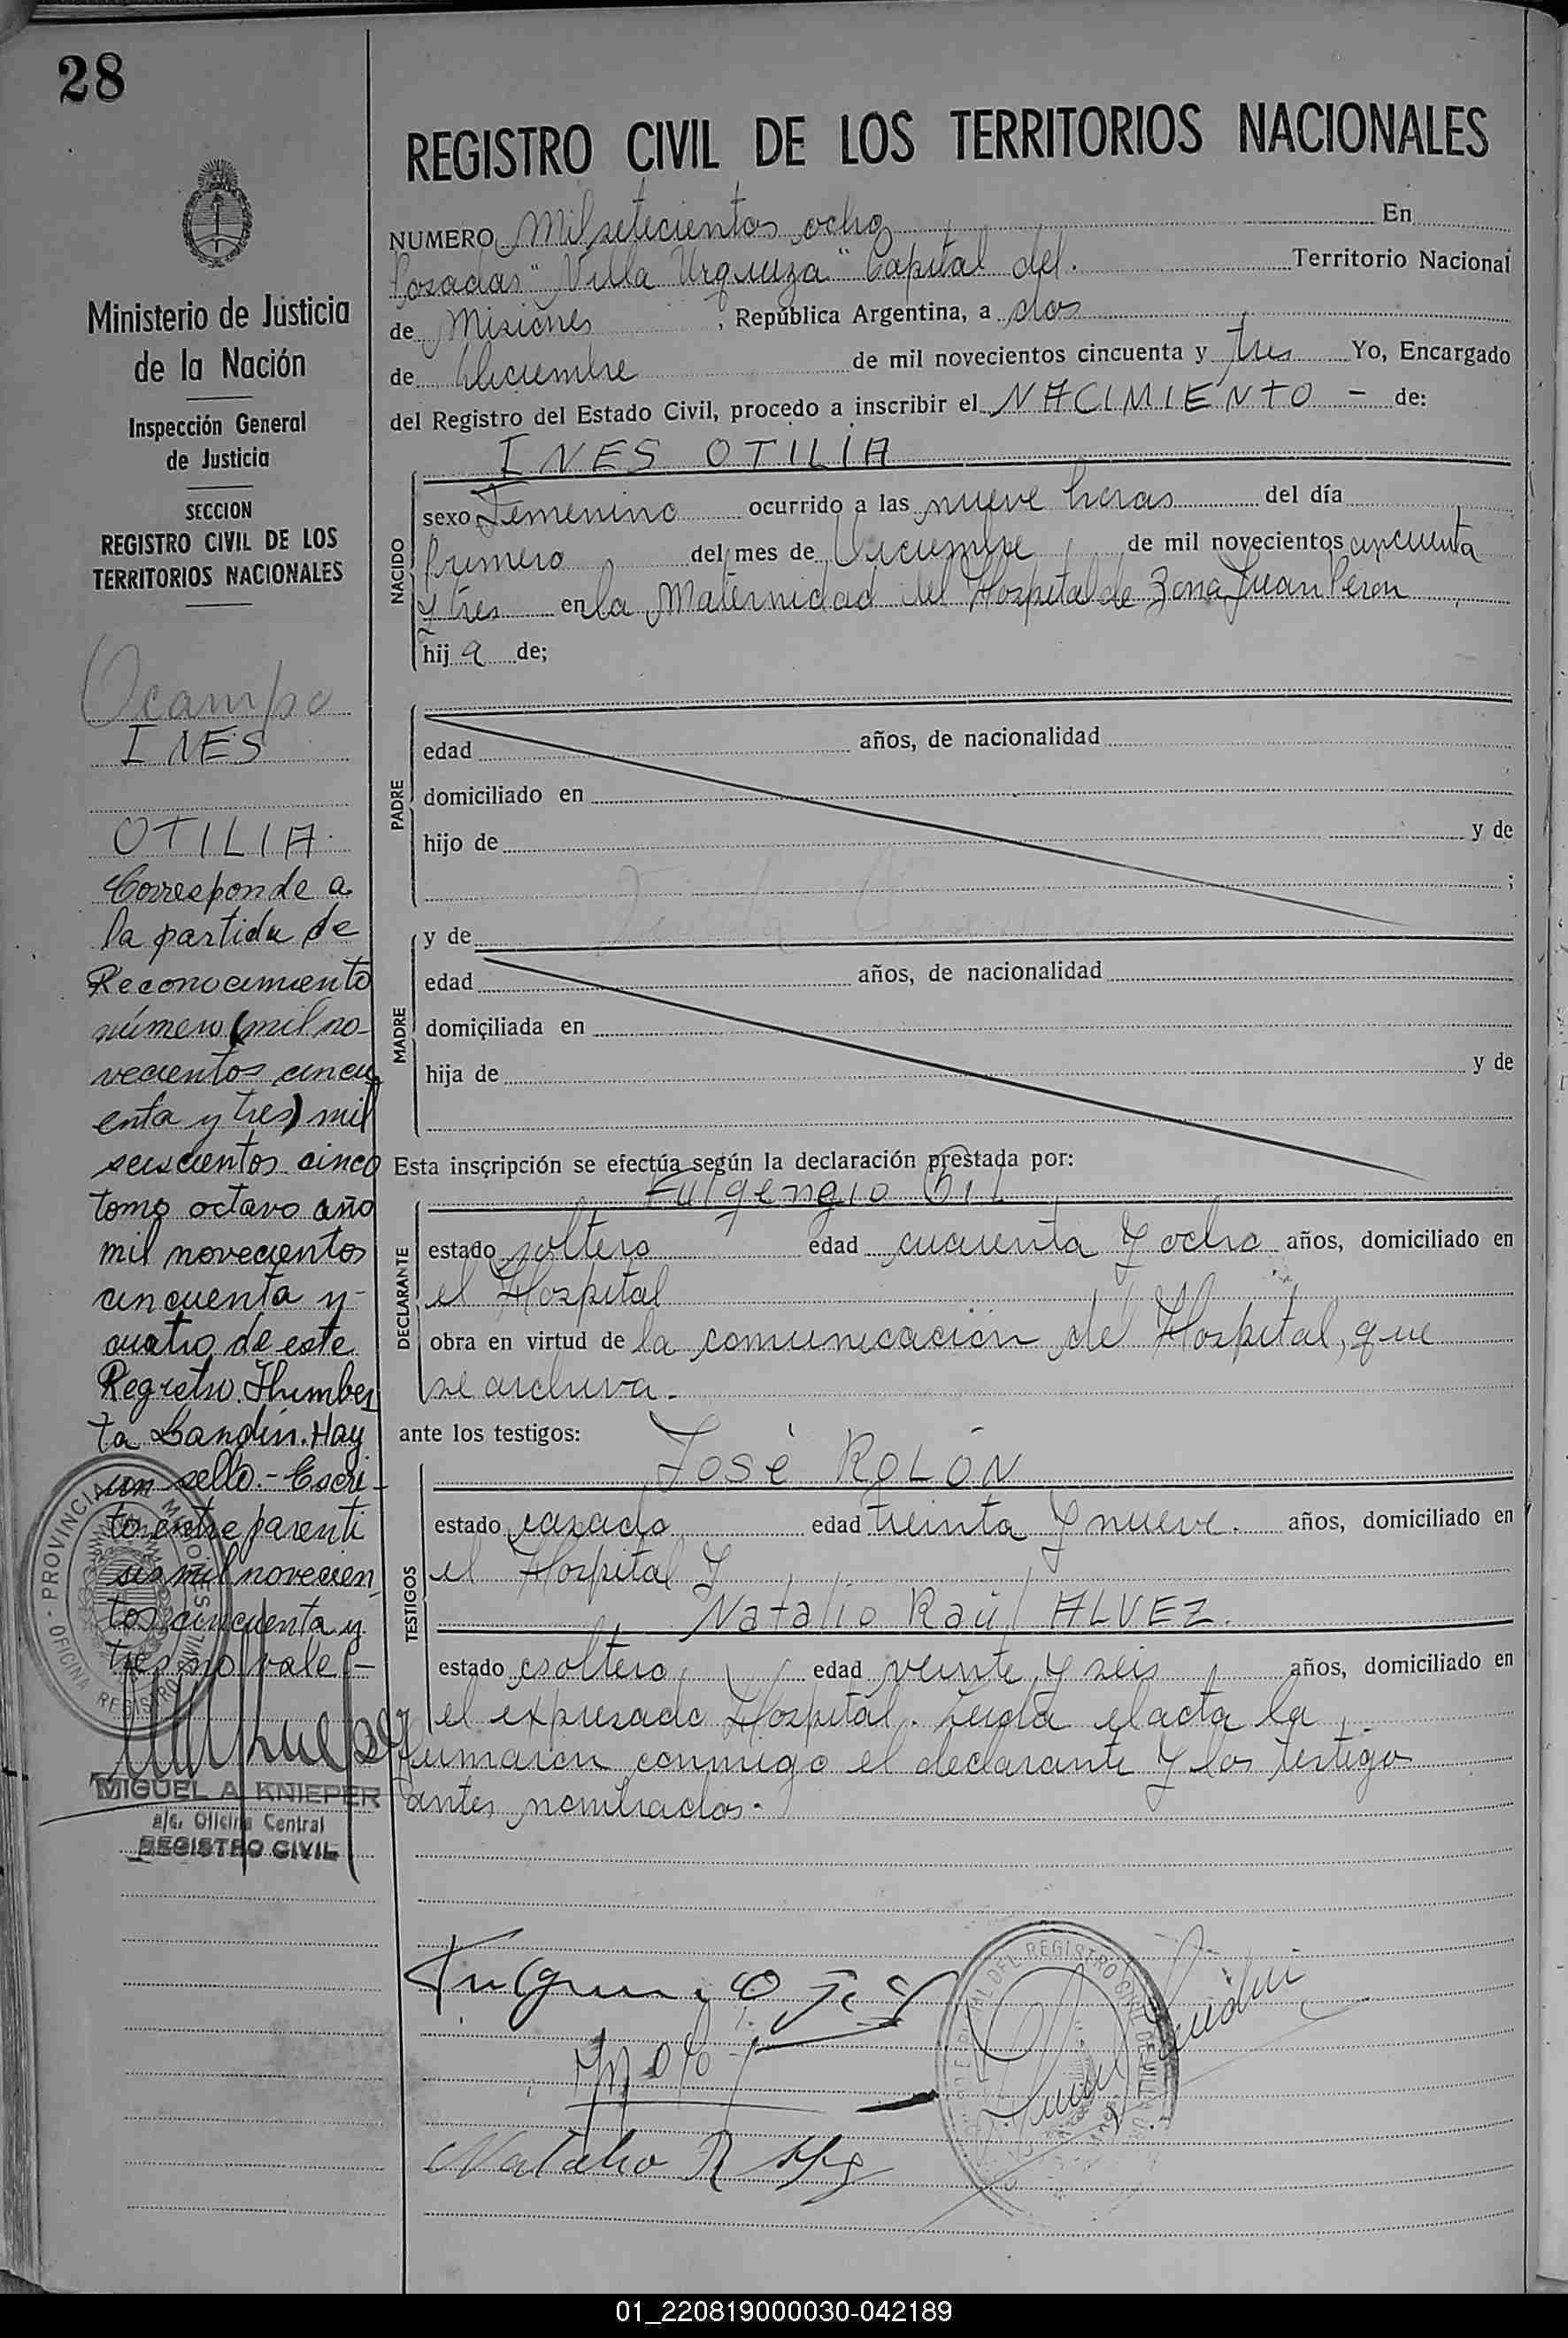 28
Ministerio de Justicia
de la Nación
Inspección General
de Justicia
SECCION
REGISTRO CIVIL DE LOS
TERRITORIOS NACIONALES
Ocampo
INES
OTILIA.
Corresponde a
la partida de
Reconocimiento
número (mil no-
vecientos cincu
enta y tres) mil
seiscientos cinco
tomo octavo año
mil novecientos
cincuenta y
cuatro de este
Registro. Humber
ta Landin. Hay
un sello.- Escri-
to entre parenti
sis mil novecien
tos cincuenta y
tres no vale.-
MIGUEL A. KNIEPER
a/c. Oficina Central
REGISTRO CIVIL
REGISTRO CIVIL DE LOS TERRITORIOS NACIONALES
NUMERO Mil setecientos ocho En
Posadas "Villa Urquiza" Capital del. Territorio Nacional
de Misiones, República Argentina, a dos
de Diciembre de mil novecientos cincuenta y tres Yo, Encargado
del Registro del Estado Civil, procedo a inscribir el NACIMIENTO - de:
INES OTILIA
NACIDO
sexo Femenino ocurrido a las nueve horas del día
primero del mes de Diciembre de mil novecientos cincuenta
y tres en la Maternidad del Hospital de Zona Juan Peron
hij a de;
PADRE
edad años, de nacionalidad
domiciliado en
hijo de y de
;
MADRE
y de
edad años, de nacionalidad
domiciliada en
hija de y de
Esta inscripción se efectúa según la declaración prestada por:
Fulgengio Gil
DECLARANTE
estado soltero edad cuarenta y ocho años, domiciliado en
el Hospital
obra en virtud de la comunicación del Hospital, que
se archiva.-
ante los testigos:
José ROLÓN
TESTIGOS
estado casado edad treinta y nueve. años, domiciliado en
el Hospital y
Natalio Raúl ALVEZ.
estado soltero edad veinte y seis años, domiciliado en
el expresado Hospital. Leida el acta la
firmaron conmigo el declarante y los testigos
antes nombrados.
Natalio R
01_220819000030-042189